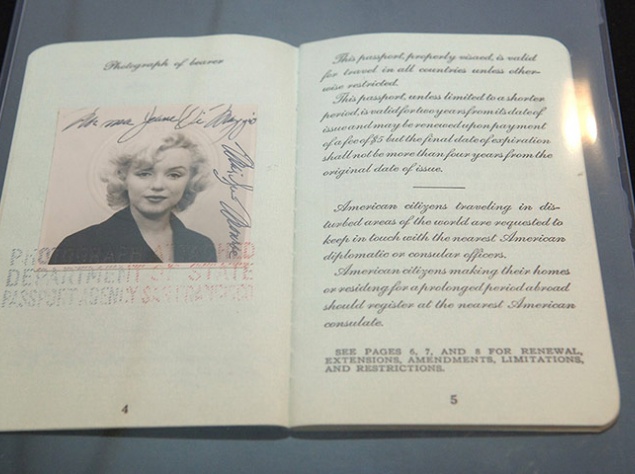 Photograph of bearer
Norma Jeane Di Maggio
Marilyn Monroe
PHOTOGRAPH ATTACHED
DEPARTMENT OF STATE
PASSPORT AGENCY SAN FRANCISCO
4
This passport, properly visaed, is valid
for travel in all countries unless other-
wise restricted.
This passport, unless limited to a shorter
period, is valid for two years from its date of
issue and may be renewed upon payment
of a fee of $5 but the final date of expiration
shall not be more than four years from the
original date of issue.
American citizens traveling in dis-
turbed areas of the world are requested to
keep in touch with the nearest American
diplomatic or consular officers.
American citizens making their homes
or residing for a prolonged period abroad
should register at the nearest American
consulate.
SEE PAGES 6, 7, AND 8 FOR RENEWAL,
EXTENSIONS, AMENDMENTS, LIMITATIONS,
AND RESTRICTIONS.
5